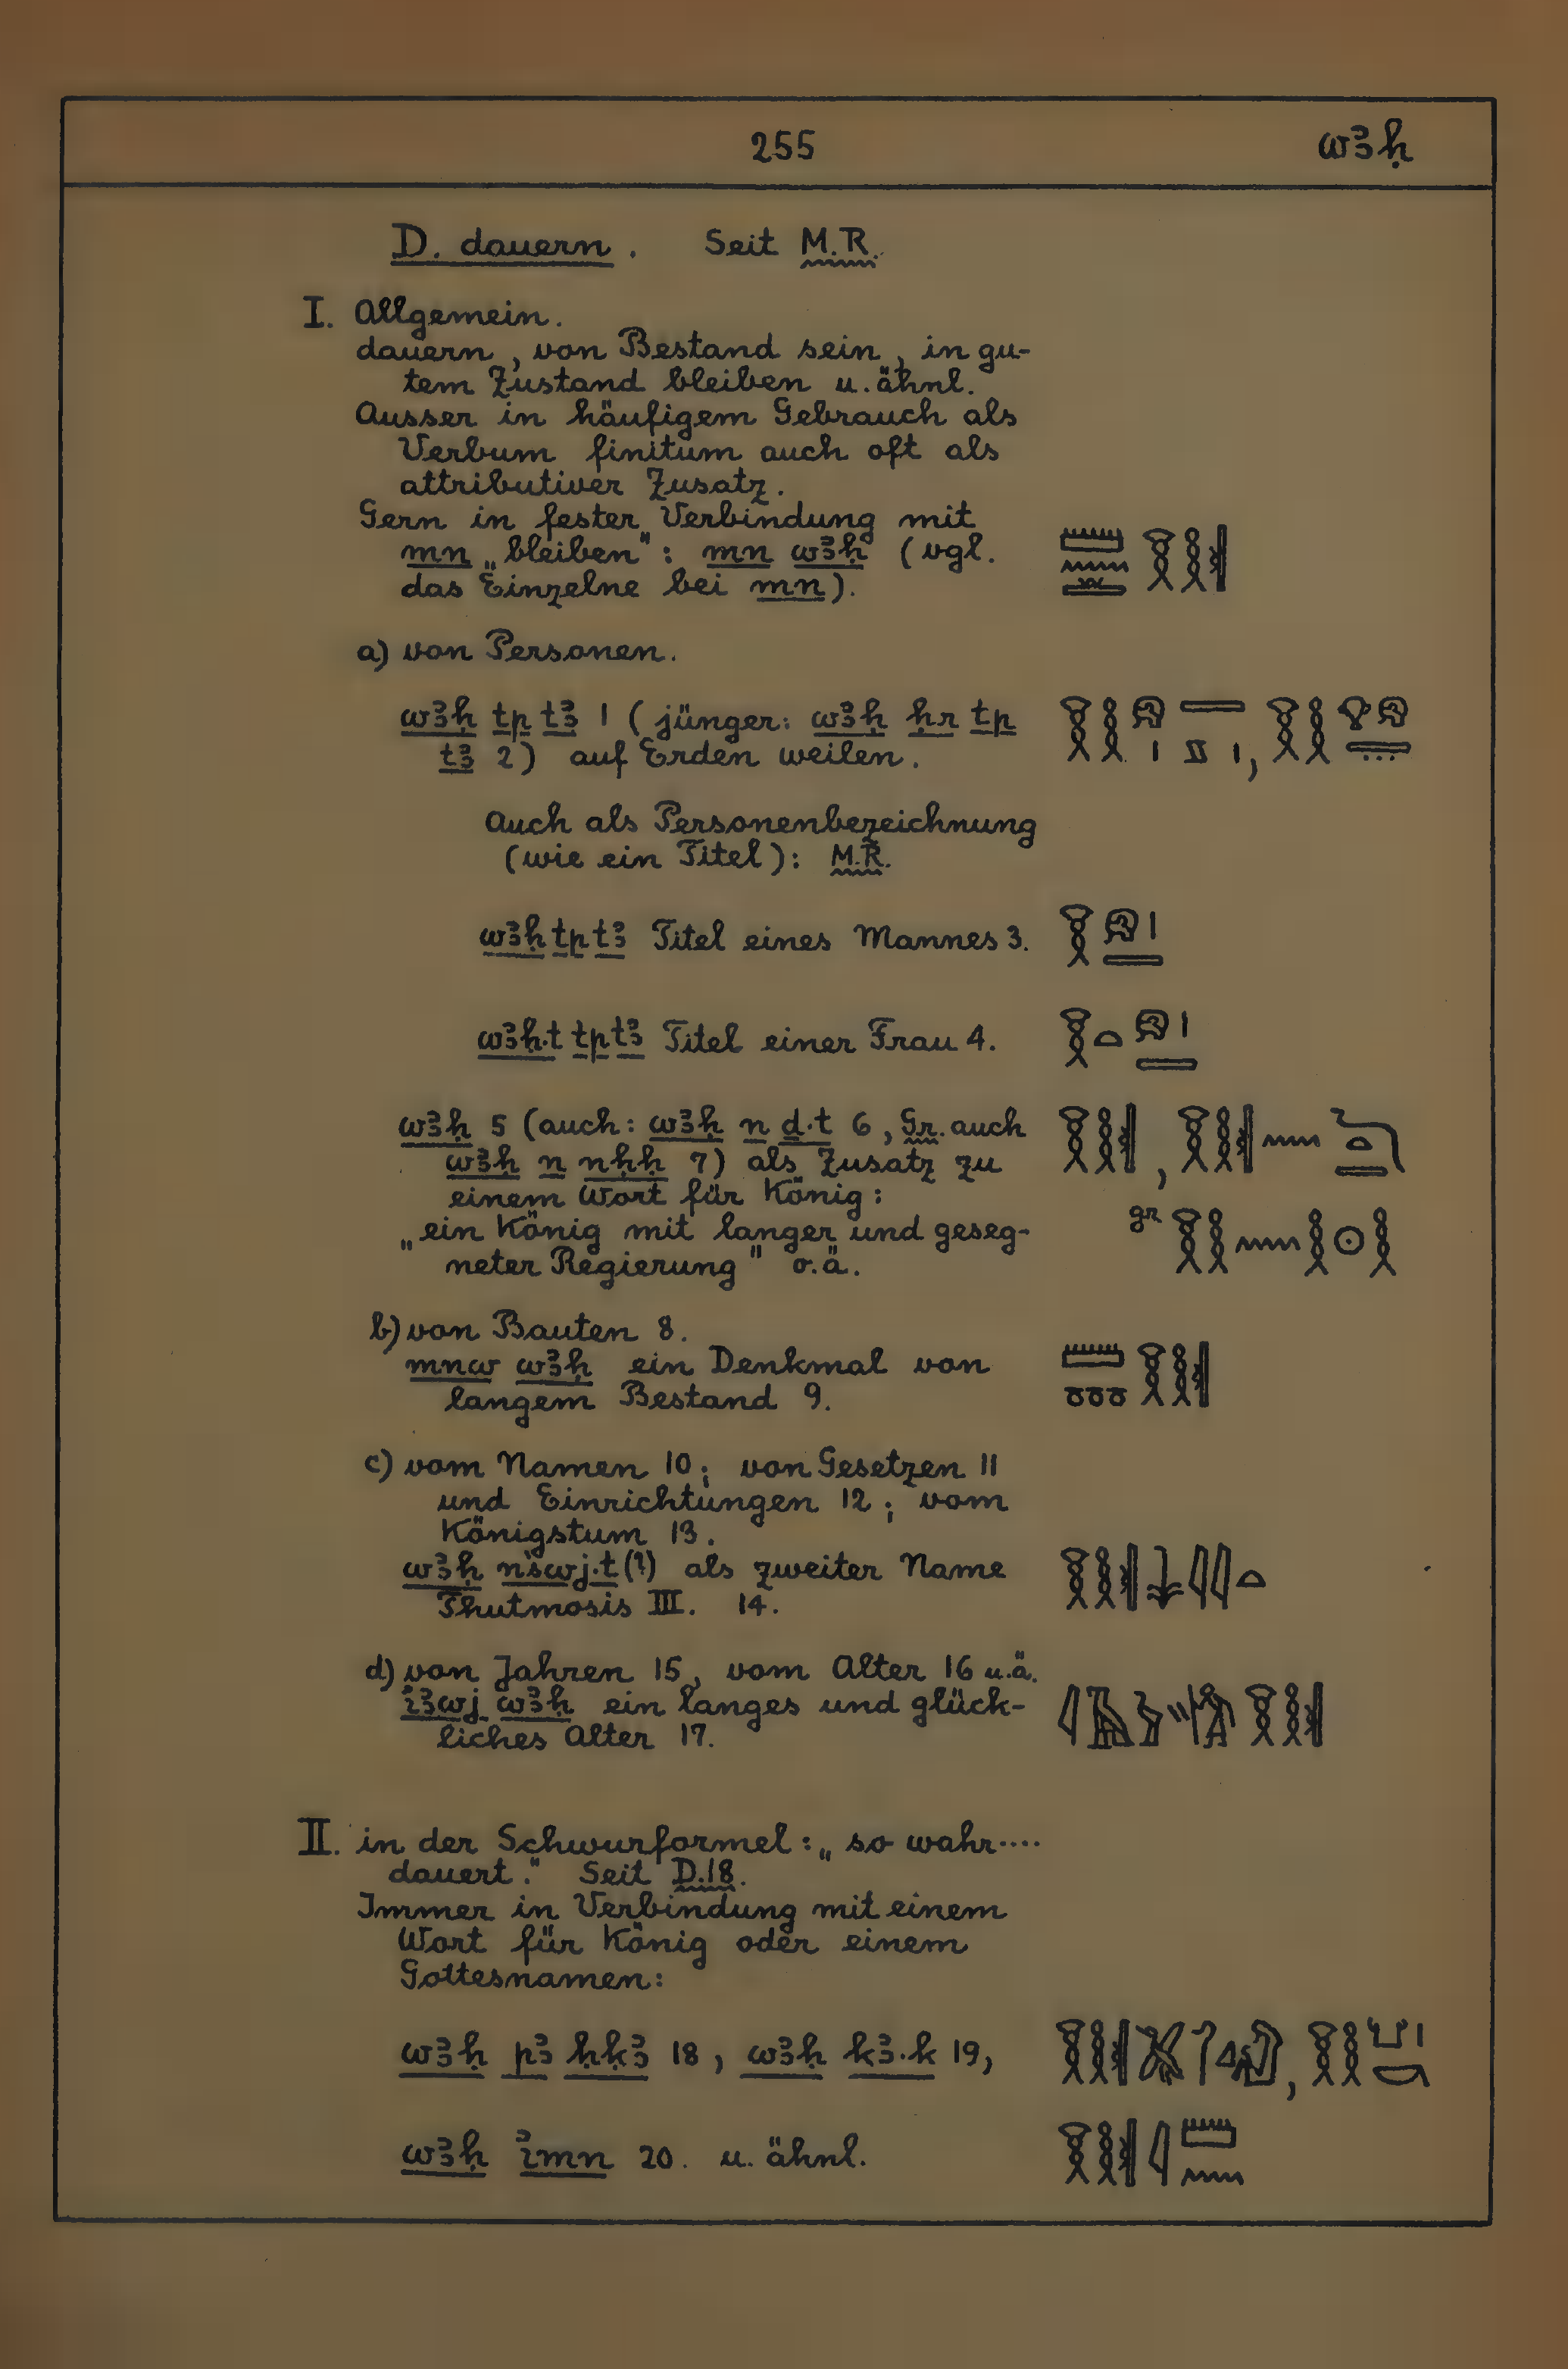 255 wꜣḥ
D. dauern. Seit M.R.
I. Allgemein.
dauern, von Bestand sein, in gu-
tem Zustand bleiben u. ähnl.
Ausser in häufigem Gebrauch als
Verbum finitum auch oft als
attributiver Zusatz.
Gern in fester Verbindung mit
mn „bleiben“: mn wꜣḥ (vgl.
das Einzelne bei mn).
a) von Personen.
wꜣḥ tp tꜣ 1 (jünger: wꜣḥ ḥr tp
tꜣ 2) auf Erden weilen.
Auch als Personenbezeichnung
(wie ein Titel): M.R.
wꜣḥ tp tꜣ Titel eines Mannes 3.
wꜣḥ.t tp tꜣ Titel einer Frau 4.
wꜣḥ 5 (auch: wꜣḥ n ḏ.t 6, Gr. auch
wꜣḥ n nḥḥ 7) als Zusatz zu
einem Wort für König:
„ein König mit langer und geseg-
neter Regierung“ o.ä.
gr
b) von Bauten 8.
mnw wꜣḥ ein Denkmal von
langem Bestand 9.
c) vom Namen 10; von Gesetzen 11
und Einrichtungen 12; vom
Königstum 13.
wꜣḥ nśwj.t (?) als zweiter Name
Thutmosis III. 14.
d) von Jahren 15, vom Alter 16 u.ä.
iꜣwj wꜣḥ ein langes und glück-
liches Alter 17.
II. in der Schwurformel: „so wahr....
dauert.“ Seit D.18.
Immer in Verbindung mit einem
Wort für König oder einem
Gottesnamen:
wꜣḥ pꜣ ḥḳꜣ 18, wꜣḥ kꜣ.k 19,
wꜣḥ imn 20. u. ähnl.